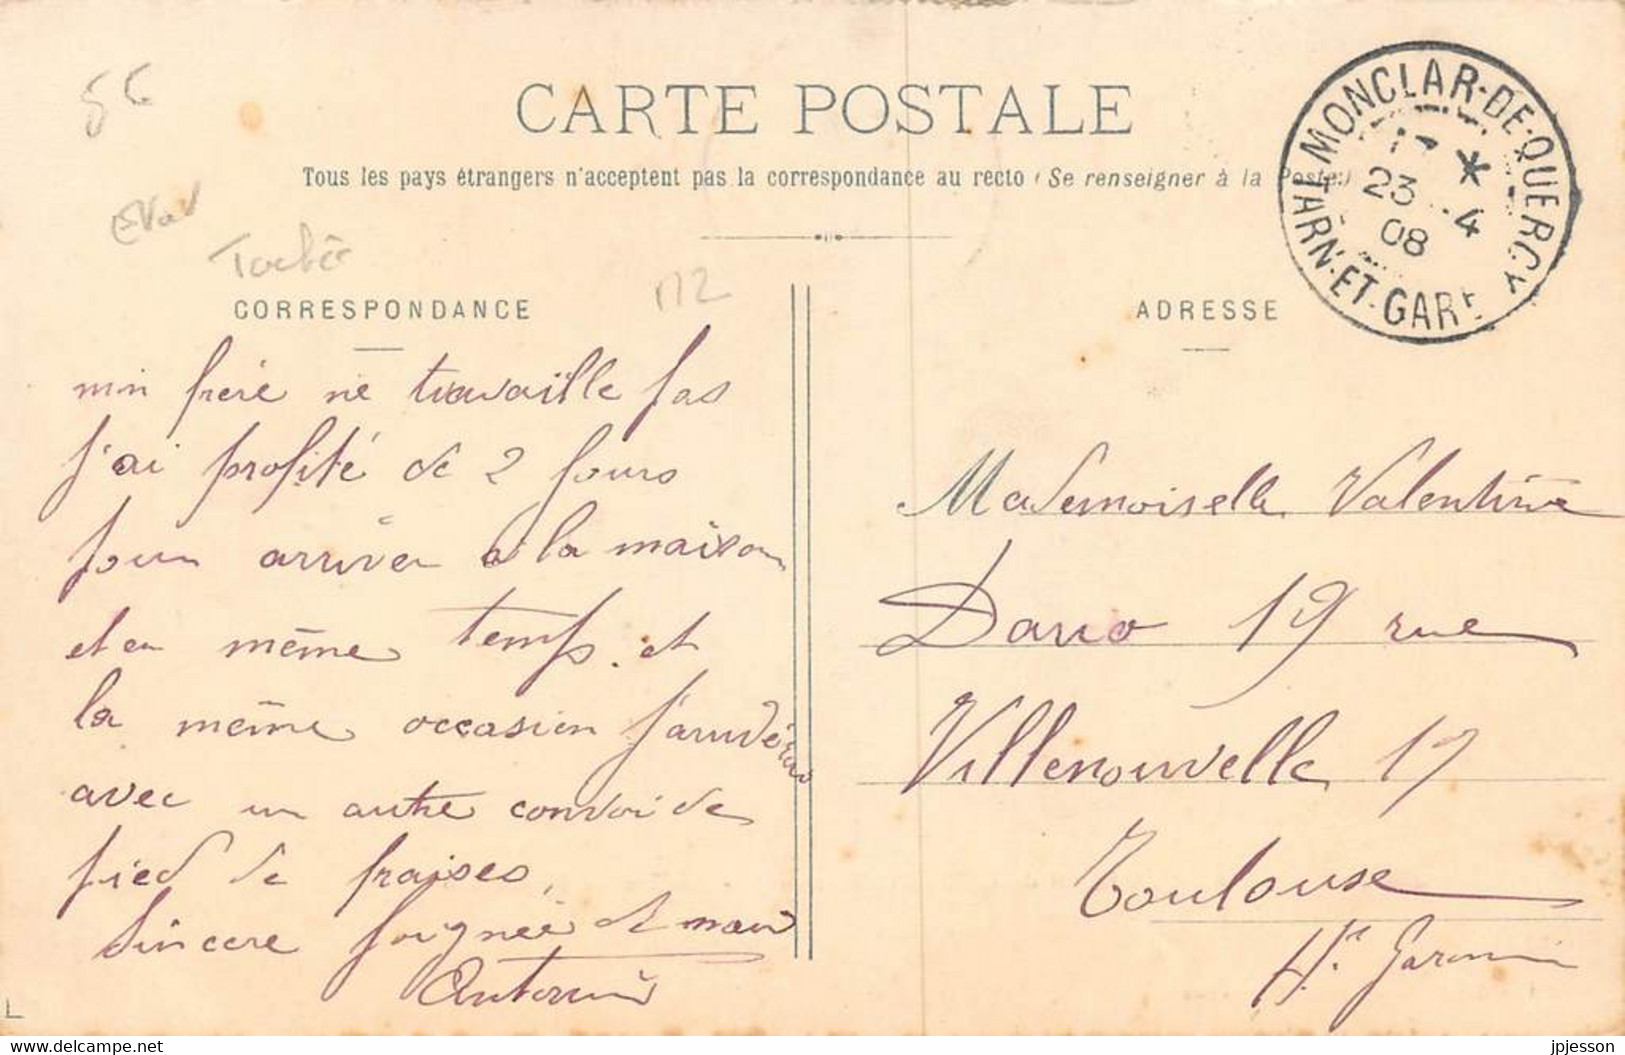 5€
CARTE POSTALE
Tous les pays étrangers n'acceptent pas la correspondance au recto (Se renseigner à la Poste.)
MONCLAR-DE-QUERCY
23 4
08
TARN-ET-GARE
112
CORRESPONDANCE
mon frère ne travaille pas
j'ai profité de 2 jours
pour arriver à la maison
et en même temps et
la même occasion
avec un autre convoi de
pied de fraises,
Sincère poignée de main
Antonin
ADRESSE
Mademoiselle Valentine
19 rue
Villenouvelle 19
Toulouse
Hte Garonne
L
www.delcampe.net
jpjesson